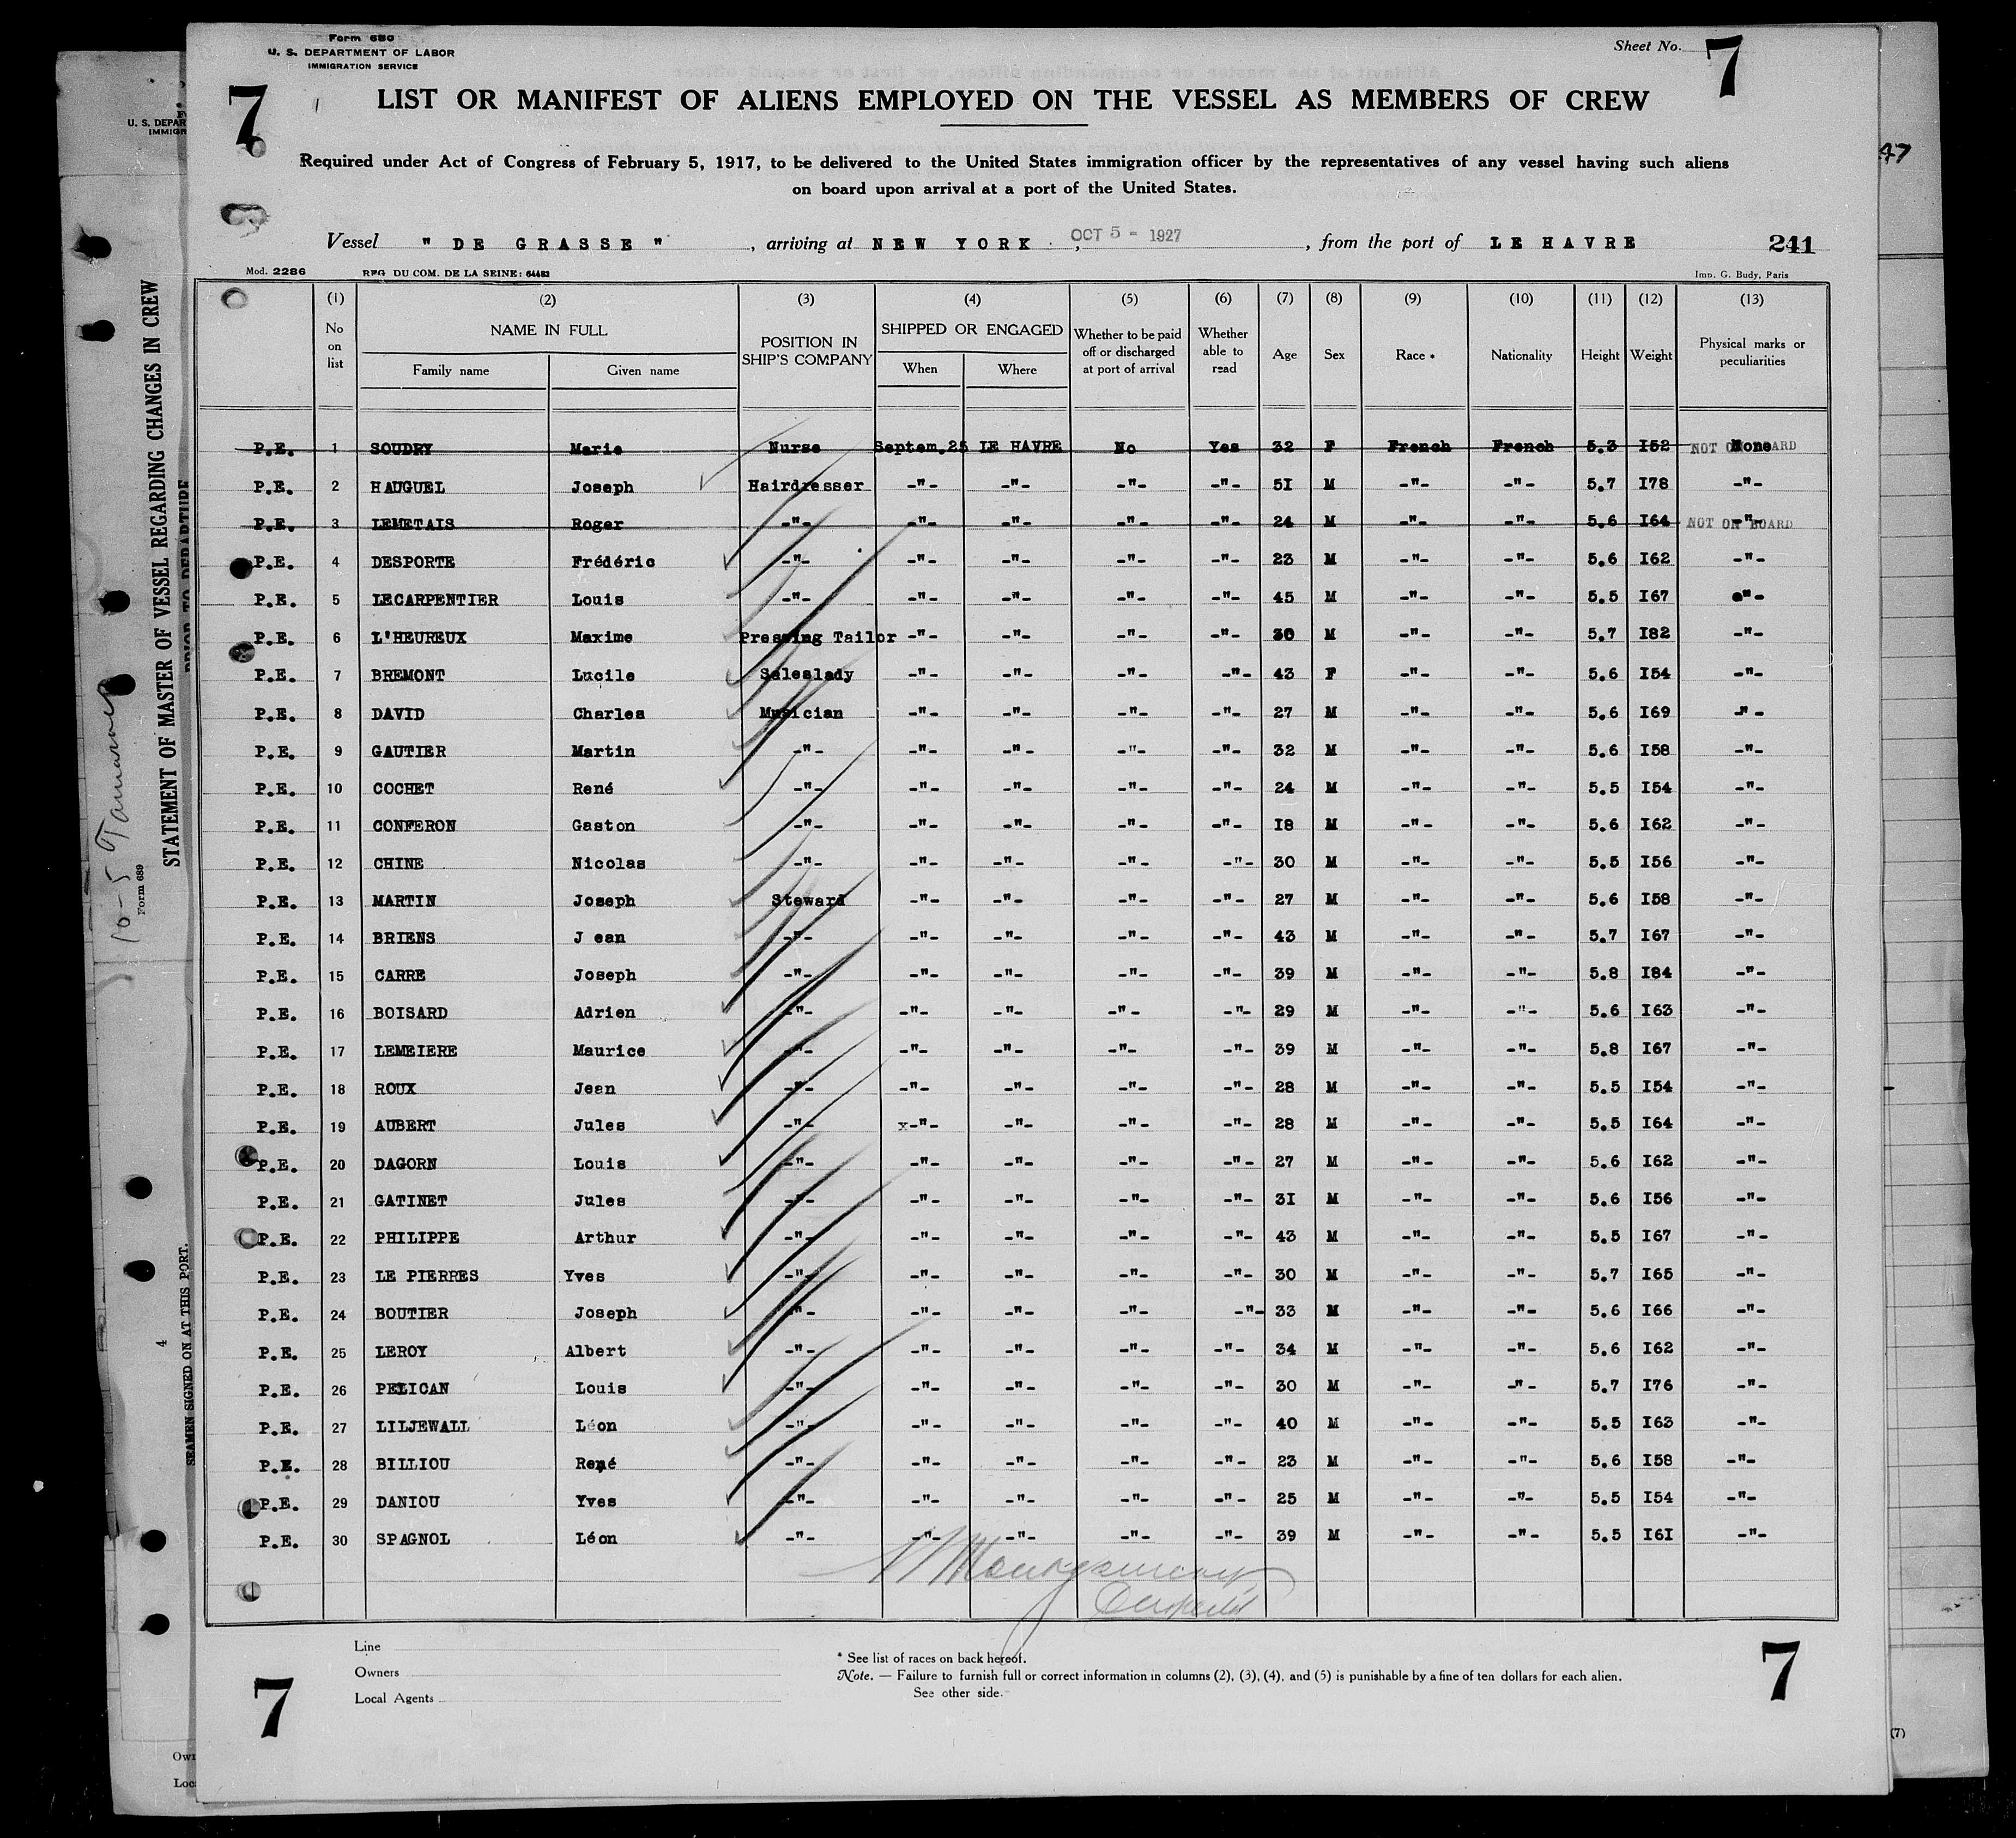 Form 680
U. S. DEPARTMENT OF LABOR
IMMIGRATION SERVICE
Sheet No. 7
7
LIST OR MANIFEST OF ALIENS EMPLOYED ON THE VESSEL AS MEMBERS OF CREW
Required under Act of Congress of February 5, 1917, to be delivered to the United States immigration officer by the representatives of any vessel having such aliens
on board upon arrival at a port of the United States.
Vessel " DE GRASSE " , arriving at NEW YORK , OCT 5 - 1927 , from the port of LE HAVRE 241
Mod. 2286 REG. DU COM. DE LA SEINE: 64483 Imp. G. Budy, Paris
(1) (2) (3) (4) (5) (6) (7) (8) (9) (10) (11) (12) (13)
No on list NAME IN FULL Family name Given name POSITION IN SHIP'S COMPANY SHIPPED OR ENGAGED When Where Whether to be paid off or discharged at port of arrival Whether able to read Age Sex Race * Nationality Height Weight Physical marks or peculiarities
P.E. 1 SOUDRY Marie Nurse Septem.25 LE HAVRE No Yes 32 F French French 5.3 I52 None NOT ON BOARD
P.E. 2 HAUGUEL Joseph Hairdresser -"- -"- -"- -"- 5I M -"- -"- 5.7 I78 -"-
P.E. 3 LEMETAIS Roger -"- -"- -"- -"- -"- 24 M -"- -"- 5.6 I64 -"- NOT ON BOARD
P.E. 4 DESPORTE Frédéric -"- -"- -"- -"- -"- 23 M -"- -"- 5.6 I62 -"-
P.E. 5 LECARPENTIER Louis -"- -"- -"- -"- -"- 45 M -"- -"- 5.5 I67 -"-
P.E. 6 L'HEUREUX Maxime Pressing Tailor -"- -"- -"- -"- 30 M -"- -"- 5.7 I82 -"-
P.E. 7 BREMONT Lucile Saleslady -"- -"- -"- -"- 43 F -"- -"- 5.6 I54 -"-
P.E. 8 DAVID Charles Musician -"- -"- -"- -"- 27 M -"- -"- 5.6 I69 -"-
P.E. 9 GAUTIER Martin -"- -"- -"- -"- -"- 32 M -"- -"- 5.6 I58 -"-
P.E. 10 COCHET René -"- -"- -"- -"- -"- 24 M -"- -"- 5.5 I54 -"-
P.E. 11 CONFERON Gaston -"- -"- -"- -"- -"- I8 M -"- -"- 5.6 I62 -"-
P.E. 12 CHINE Nicolas -"- -"- -"- -"- -"- 30 M -"- -"- 5.5 I56 -"-
P.E. 13 MARTIN Joseph Steward -"- -"- -"- -"- 27 M -"- -"- 5.6 I58 -"-
P.E. 14 BRIENS J ean -"- -"- -"- -"- -"- 43 M -"- -"- 5.7 I67 -"-
P.E. 15 CARRE Joseph -"- -"- -"- -"- -"- 39 M -"- -"- 5.8 I84 -"-
P.E. 16 BOISARD Adrien -"- -"- -"- -"- -"- 29 M -"- -"- 5.6 I63 -"-
P.E. 17 LEMEIERE Maurice -"- -"- -"- -"- -"- 39 M -"- -"- 5.8 I67 -"-
P.E. 18 ROUX Jean -"- -"- -"- -"- -"- 28 M -"- -"- 5.5 I54 -"-
P.E. 19 AUBERT Jules -"- x-"- -"- -"- -"- 28 M -"- -"- 5.5 I64 -"-
P.E. 20 DAGORN Louis -"- -"- -"- -"- -"- 27 M -"- -"- 5.6 I62 -"-
P.E. 21 GATINET Jules -"- -"- -"- -"- -"- 3I M -"- -"- 5.6 I56 -"-
P.E. 22 PHILIPPE Arthur -"- -"- -"- -"- -"- 43 M -"- -"- 5.5 I67 -"-
P.E. 23 LE PIERRES Yves -"- -"- -"- -"- -"- 30 M -"- -"- 5.7 I65 -"-
P.E. 24 BOUTIER Joseph -"- -"- -"- -"- -"- 33 M -"- -"- 5.6 I66 -"-
P.E. 25 LEROY Albert -"- -"- -"- -"- -"- 34 M -"- -"- 5.6 I62 -"-
P.E. 26 PELICAN Louis -"- -"- -"- -"- -"- 30 M -"- -"- 5.7 I76 -"-
P.E. 27 LILJEWALL Léon -"- -"- -"- -"- -"- 40 M -"- -"- 5.5 I63 -"-
P.E. 28 BILLIOU René -"- -"- -"- -"- -"- 23 M -"- -"- 5.6 I58 -"-
P.E. 29 DANIOU Yves -"- -"- -"- -"- -"- 25 M -"- -"- 5.5 I54 -"-
P.E. 30 SPAGNOL Léon -"- -"- -"- -"- -"- 39 M -"- -"- 5.5 I6I -"-
Line
Owners
Local Agents
* See list of races on back hereof.
Note. — Failure to furnish full or correct information in columns (2), (3), (4), and (5) is punishable by a fine of ten dollars for each alien.
See other side.
7
7
U. S. DEPAR
IMMIGR
STATEMENT OF MASTER OF VESSEL REGARDING CHANGES IN CREW
PRIOR TO DEPARTURE
Form 689
SEAMEN SIGNED ON AT THIS PORT.
4
Own
Loc
47
(7)